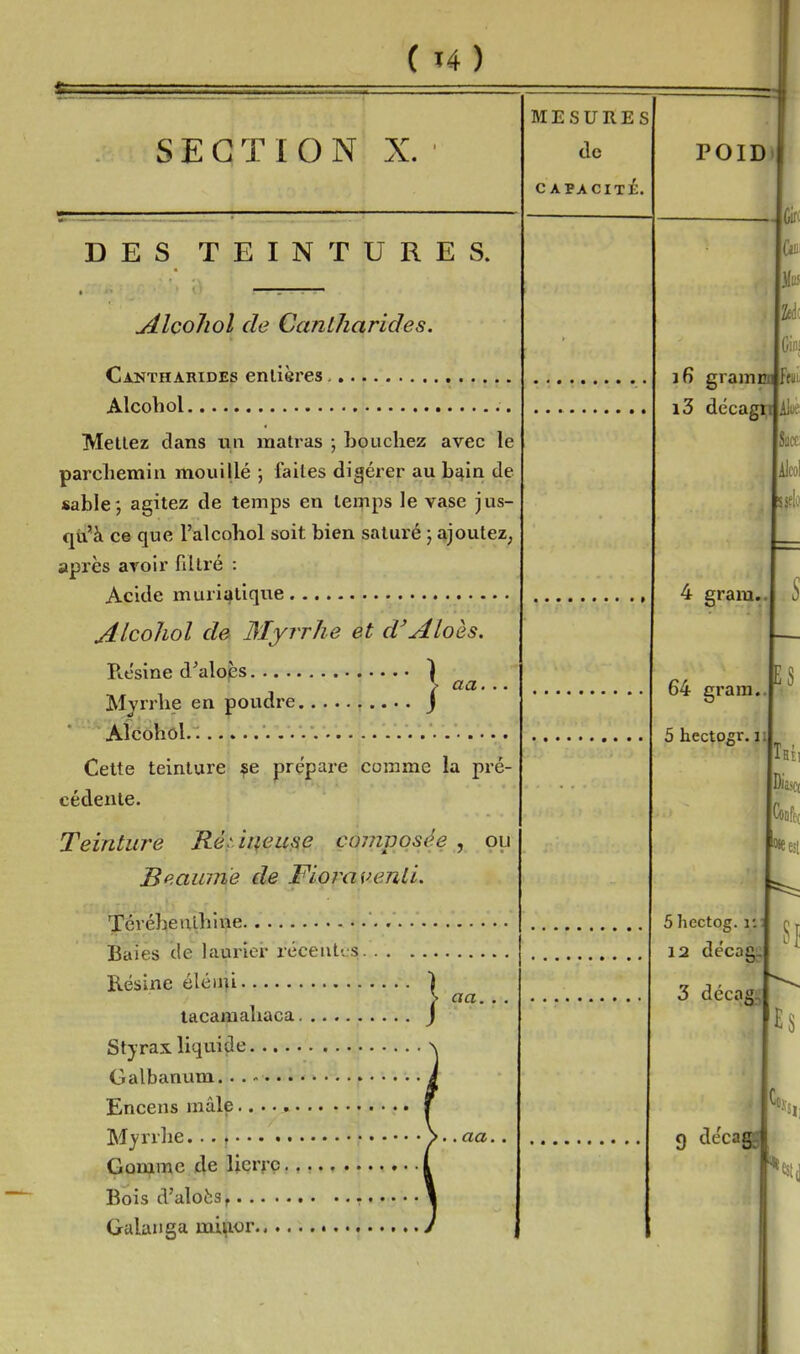 ( 14 )
SECTION X.
MESURES
de
CAPACITÉ.
POID
DES TEINTURES.
Alcohol de Cantharides.
CANTHARIDES entières. .................... .......... 16 gramm
Alcohol.............................. .......... 13 décagr
Mettez dans un matras ; bouchez avec le
parchemin mouillé ; faites digérer au bain de
sable ; agitez de temps en temps le vase jus-
qu'à ce que l'alcohol soit bien saturé ; ajoutez,
après avoir filtré :
Acide muriatique .................... .......... 4 gram.
Alcohol de Myrrhe et d'Aloès.
Résine d'aloès................ } aa... .......... 64 gram.
Myrrhe en poudre..........
Alcohol.............................. .......... 5 hectogr. 1
Cette teinture se prépare comme la pré-
cédente.
Teinture Résineuse composée , ou
Beaume de Fioraventi.
Térébenthine.......................... .......... 5 hectog. 1
Baies de laurier récentes............... .......... 12 décag.
Résine élémi................ } aa... .......... 3 décag.
tacamahaca..........
Styrax liquide................
Galbanum................
Encens mâle................
Myrrhe................ } ..aa.. .......... 9 décag.
Gomme de lierre................
Bois d'aloès................
Galanga minor................